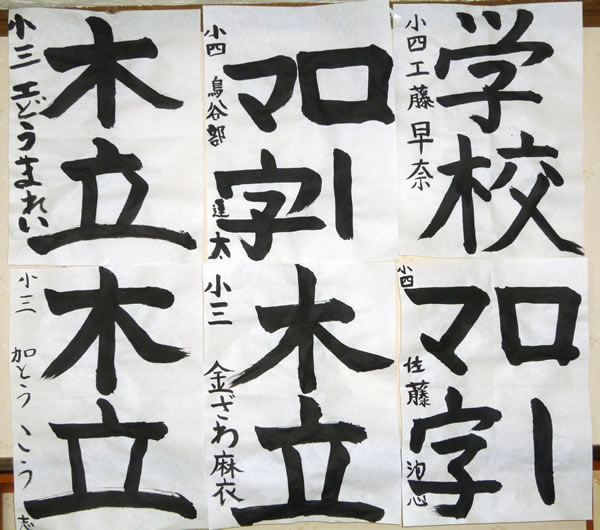 木立
小三 工どうまれい
ロー
マ字
小四 鳥谷部 太
学校
小四 工藤 早奈
木立
小三 加とう こう志
木立
小三 金ざわ麻衣
ロー
マ字
小四 佐藤 心